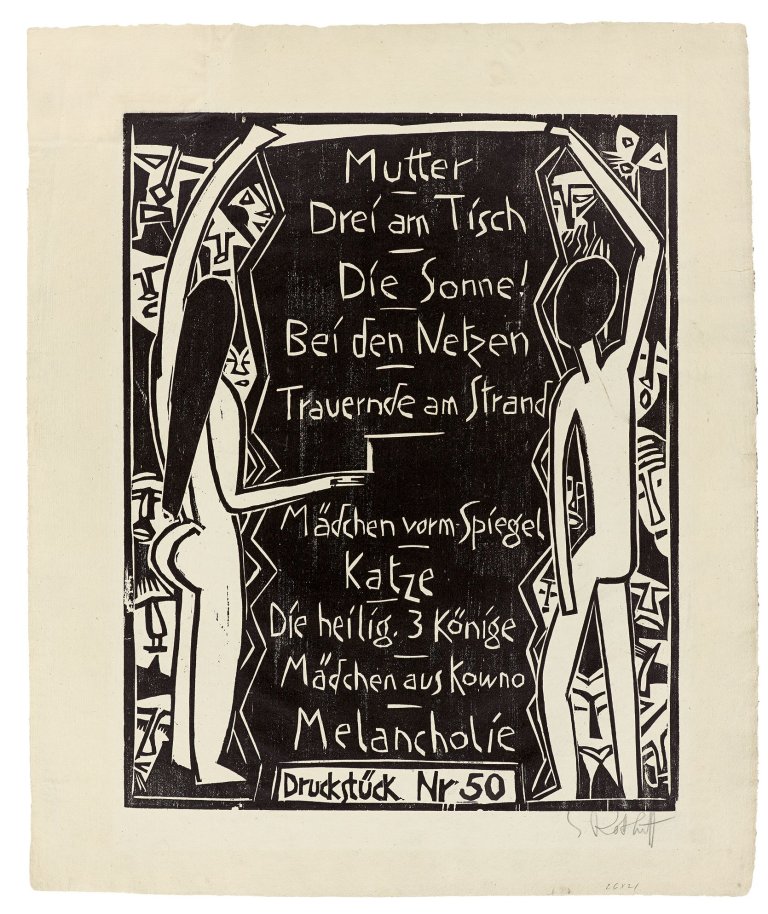 Mutter
Drei am Tisch
Die Sonne!
Bei den Netzen
Trauernde am Strand
Mädchen vorm Spiegel
Katze
Die heilig. 3 Könige
Mädchen aus Kowno
Melancholie
Druckstück Nr 50
S Rottluff